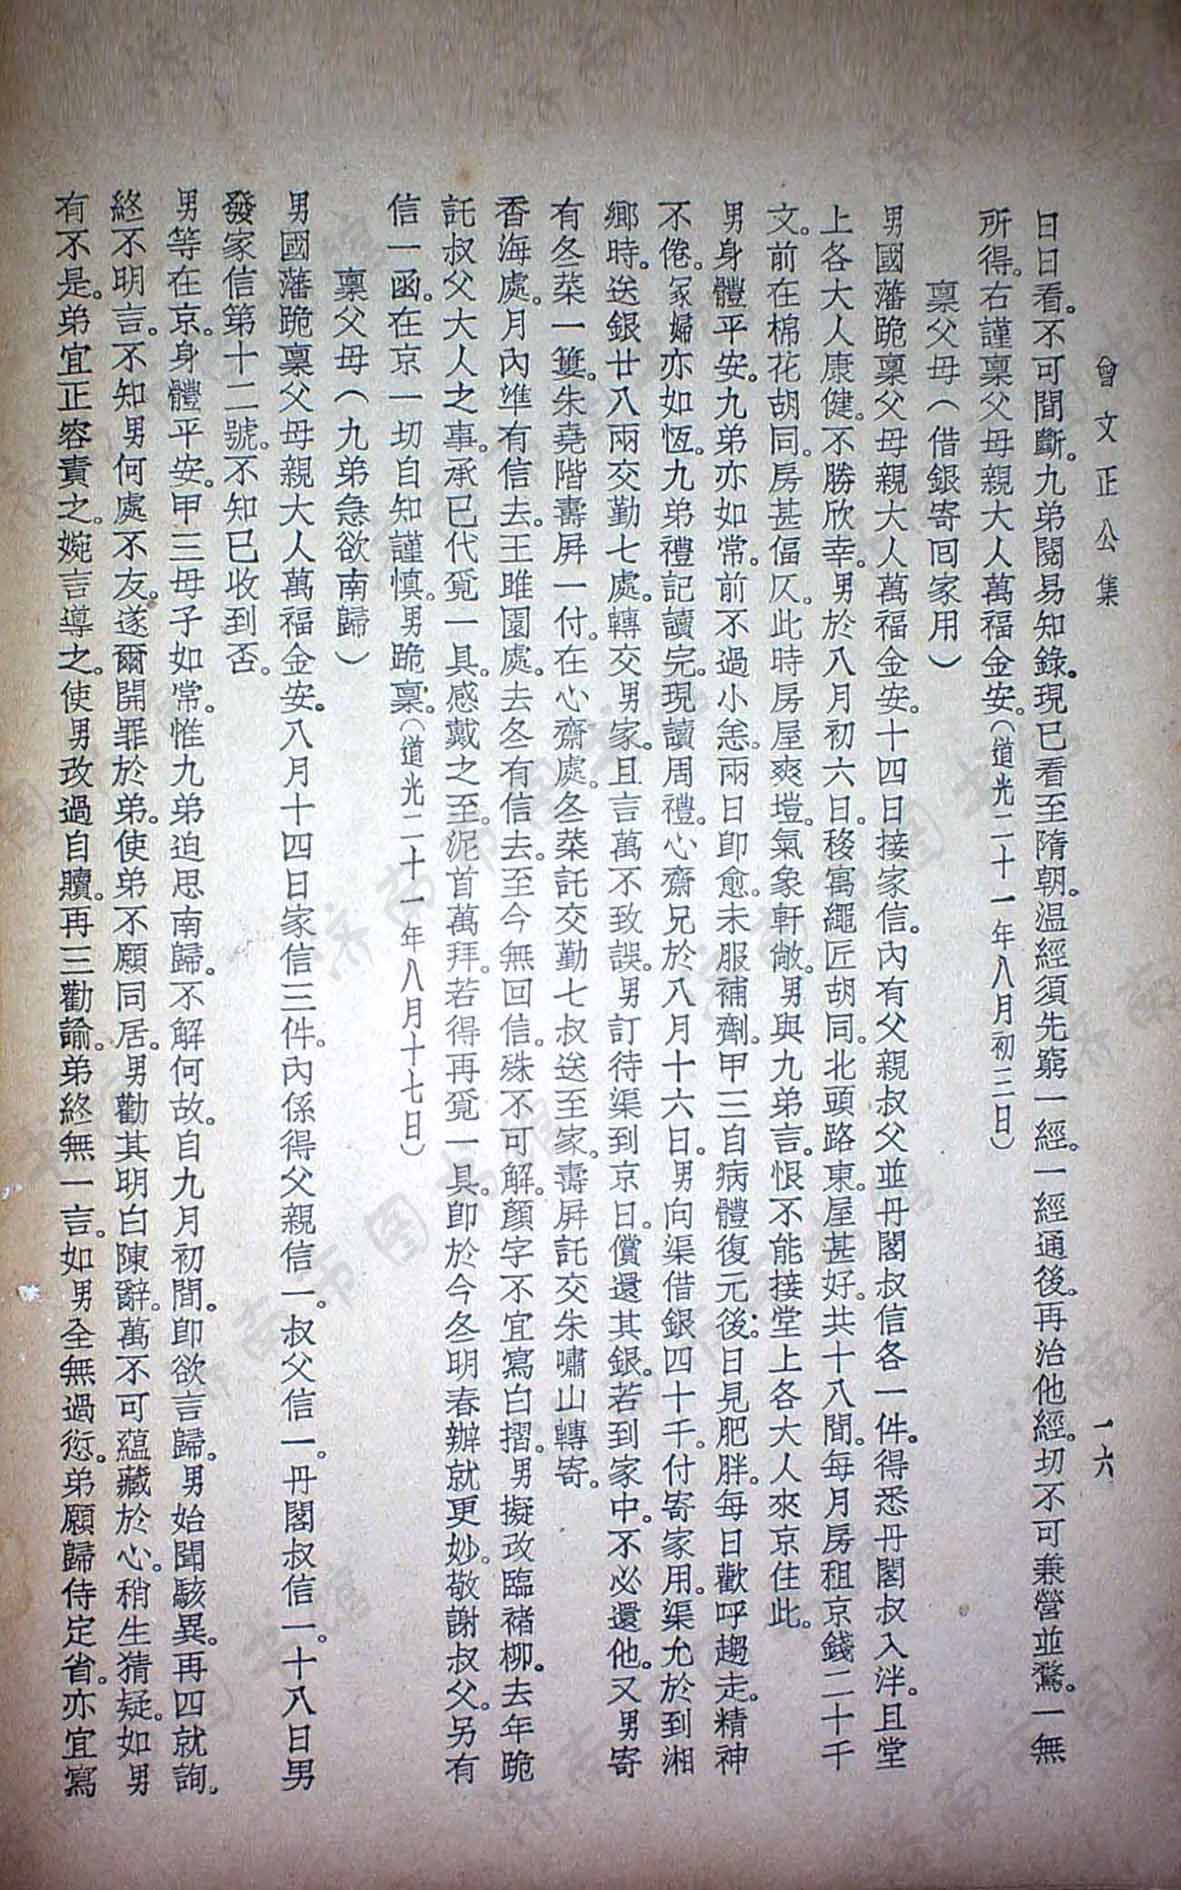 曾文正公集
一六
日日看。不可間斷。九弟閱易知錄。現已看至隋朝。温經須先窮一經。一經通後。再治他經。切不可兼營並騖。一無
所得。右謹稟父母親大人萬福金安。(道光二十一年八月初三日)
稟父母(借銀寄囘家用)
男國藩跪稟父母親大人萬福金安。十四日接家信。內有父親叔父並丹閣叔信各一件。得悉丹閣叔入泮。且堂
上各大人康健。不勝欣幸。男於八月初六日。移寓繩匠胡同。北頭路東。屋甚好。共十八間。每月房租京錢二十千
文。前在棉花胡同。房甚偪仄。此時房屋爽塏。氣象軒敞。男與九弟言。恨不能接堂上各大人來京住此。
男身體平安。九弟亦如常。前不過小恙。兩日卽愈。未服補劑。甲三自病體復元後。日見肥胖。每日歡呼趨走。精神
不倦。冢婦亦如恆。九弟禮記讀完。現讀周禮。心齋兄於八月十六日。男向渠借銀四十千。付寄家用。渠允於到湘
鄉時。送銀廿八兩交勤七處。轉交男家。且言萬不致誤。男訂待渠到京日。償還其銀。若到家中。不必還他。又男寄
有冬菜一簍。朱堯階壽屏一付。在心齋處。冬菜託交勤七叔送至家。壽屏託交朱嘯山轉寄。
香海處。月內準有信去。王雎園處。去冬有信去。至今無回信。殊不可解。顏字不宜寫白摺。男擬改臨褚柳。去年跪
託叔父大人之事。承已代覓一具。感戴之至。泥首萬拜。若得再覓一具。卽於今冬明春辦就更妙。敬謝叔父。另有
信一函。在京一切自知謹慎。男跪稟。(道光二十一年八月十七日)
稟父母(九弟急欲南歸)
男國藩跪稟父母親大人萬福金安。八月十四日家信三件。內係得父親信一。叔父信一。丹閣叔信一。十八日男
發家信第十二號。不知已收到否。
男等在京。身體平安。甲三母子如常。惟九弟迫思南歸。不解何故。自九月初間。卽欲言歸。男始聞駭異。再四就詢。
終不明言。不知男何處不友。遂爾開罪於弟。使弟不願同居。男勸其明白陳辭。萬不可蘊藏於心。稍生猜疑。如男
有不是。弟宜正容責之。婉言導之。使男改過自贖。再三勸諭。弟終無一言。如男全無過愆。弟願歸侍定省。亦宜寫